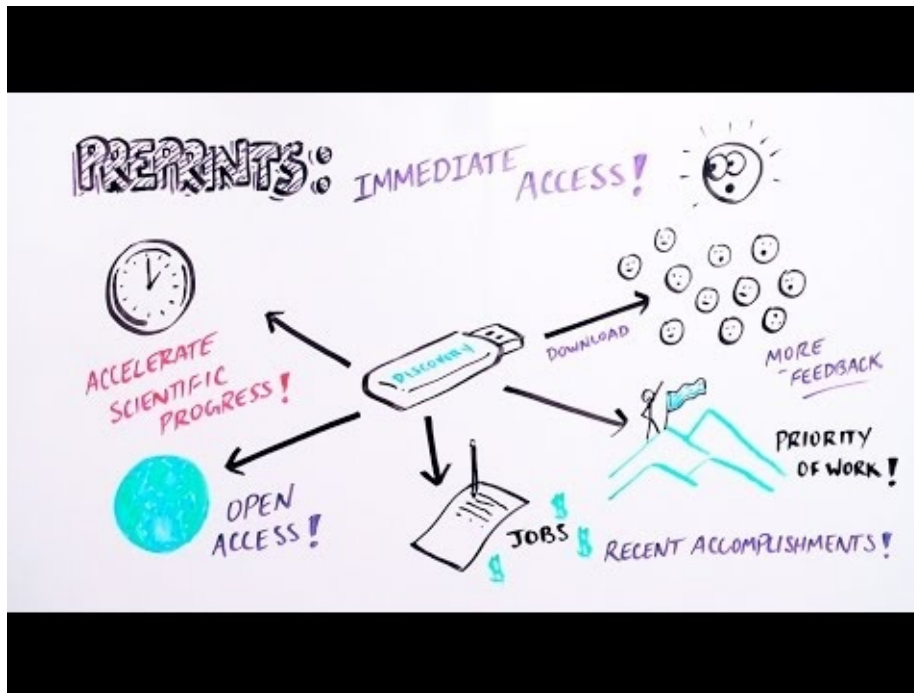 PREPRINTS:
IMMEDIATE ACCESS!
ACCELERATE
SCIENTIFIC
PROGRESS!
DISCOVERY
DOWNLOAD
MORE
FEEDBACK
PRIORITY
OF WORK!
OPEN
ACCESS!
JOBS
$
$
$
RECENT ACCOMPLISHMENTS!